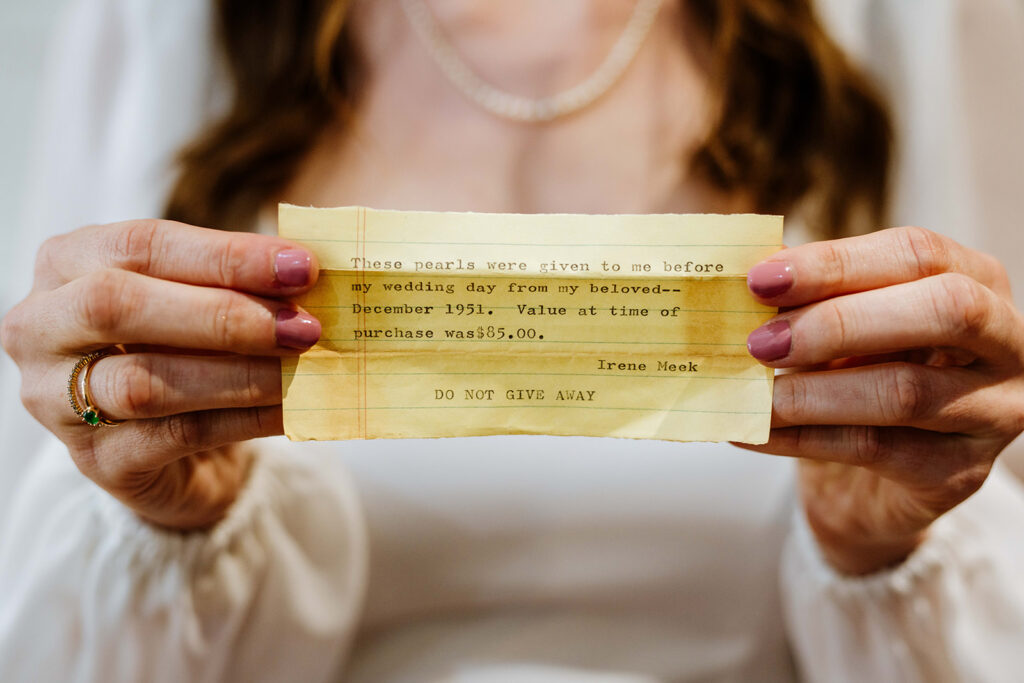 These pearls were given to me before
my wedding day from my beloved--
December 1951. Value at time of
purchase was$85.00.
Irene Meek
DO NOT GIVE AWAY